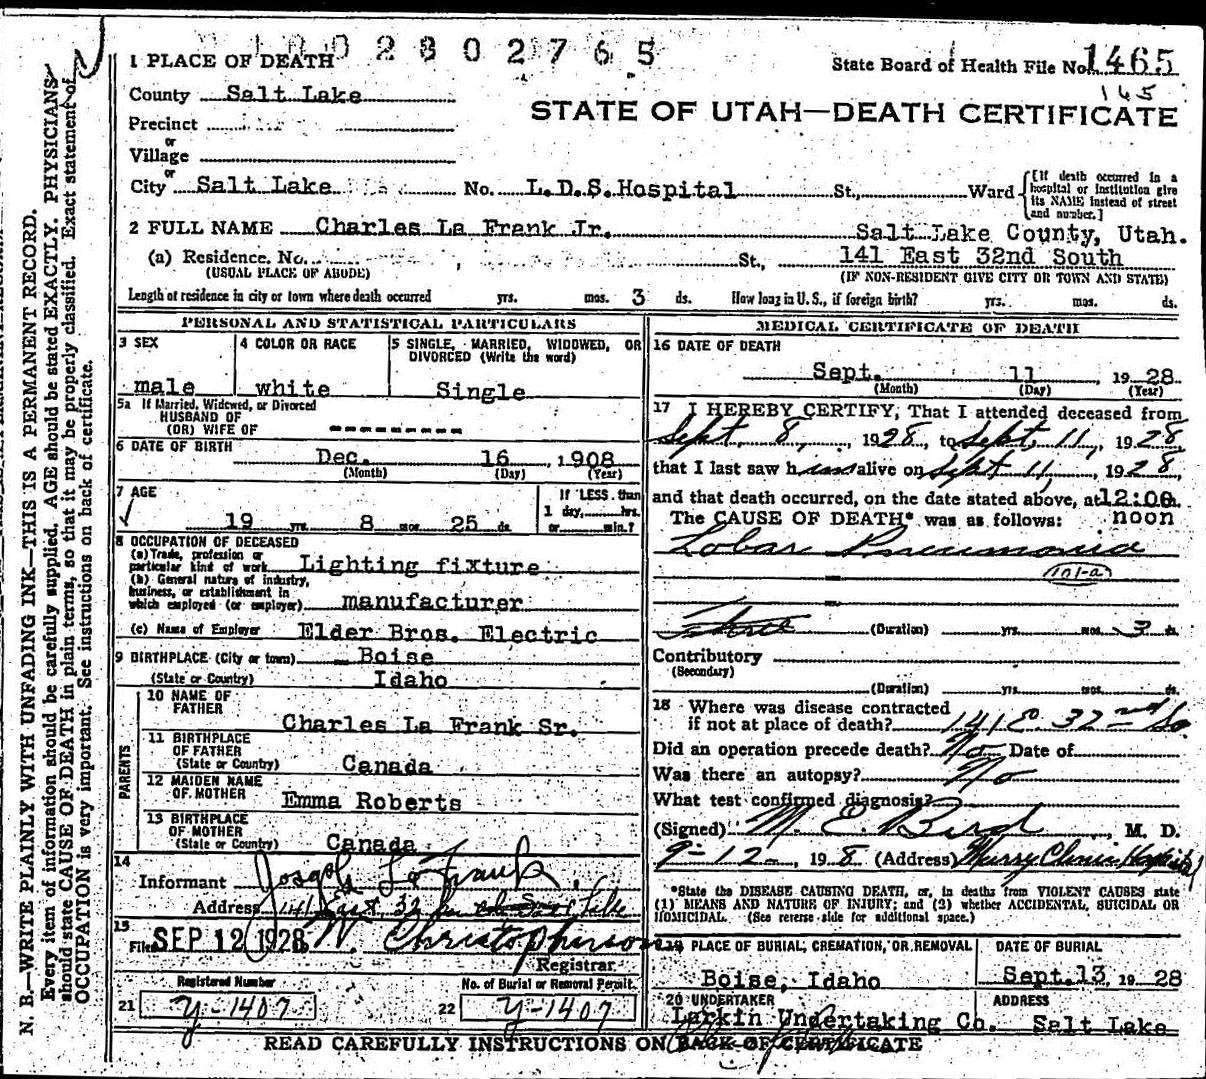 1002802765
1 PLACE OF DEATH
State Board of Health File No. 1465
165
County Salt Lake
STATE OF UTAH—DEATH CERTIFICATE
Precinct
or
Village
or
City Salt Lake No. L.D.S.Hospital St., Ward
[If death occurred in a hospital or institution give its NAME instead of street and number.]
2 FULL NAME Charles La Frank Jr.
Salt Lake County, Utah.
(a) Residence. No. St., 141 East 32nd South
(USUAL PLACE OF ABODE) (IF NON-RESIDENT GIVE CITY OR TOWN AND STATE)
Length of residence in city or town where death occurred yrs. mos. 3 ds. How long in U. S., if foreign birth? yrs. mos. ds.
PERSONAL AND STATISTICAL PARTICULARS
3 SEX 4 COLOR OR RACE 5 SINGLE, MARRIED, WIDOWED, OR DIVORCED (Write the word)
male white Single
5a If Married, Widowed, or Divorced
HUSBAND OF
(OR) WIFE OF ---------
6 DATE OF BIRTH
Dec. 16, 1908
(Month) (Day) (Year)
7 AGE If LESS than
1 day, hrs.
19 yrs. 8 mos. 25 ds. or min.?
8 OCCUPATION OF DECEASED
(a) Trade, profession or
particular kind of work Lighting fixture
(b) General nature of industry,
business, or establishment in
which employed (or employer) manufacturer
(c) Name of Employer Elder Bros. Electric
9 BIRTHPLACE (City or town) Boise
(State or Country) Idaho
PARENTS
10 NAME OF
FATHER
Charles La Frank Sr.
11 BIRTHPLACE
OF FATHER
(State or Country) Canada
12 MAIDEN NAME
OF MOTHER
Emma Roberts
13 BIRTHPLACE
OF MOTHER
(State or Country) Canada
14
Informant Joseph La Frank
Address 141 East 32 Salt Lake
15
Filed SEP 12 1928 W. Christopherson
Registrar.
Registered Number No. of Burial or Removal Permit.
21 Y-1407 22 Y-1407
MEDICAL CERTIFICATE OF DEATH
16 DATE OF DEATH
Sept. 11, 1928
(Month) (Day) (Year)
17 I HEREBY CERTIFY, That I attended deceased from
Sept. 8, 1928, to Sept. 11, 1928
that I last saw him alive on Sept 11, 1928,
and that death occurred, on the date stated above, at 12:00 m.
The CAUSE OF DEATH* was as follows: noon
Lobar Pneumonia
101-a
(Duration) yrs. mos. 3 ds.
Contributory
(Secondary)
(Duration) yrs. mos. ds.
18 Where was disease contracted
if not at place of death? 141 E. 32nd So.
Did an operation precede death? No Date of
Was there an autopsy? No
What test confirmed diagnosis?
(Signed) M. E. Bird, M. D.
9-12-, 19 8 (Address) Murry Clinic Hospital
*State the DISEASE CAUSING DEATH, or, in deaths from VIOLENT CAUSES state
(1) MEANS AND NATURE OF INJURY; and (2) whether ACCIDENTAL, SUICIDAL OR
HOMICIDAL. (See reverse side for additional space.)
19 PLACE OF BURIAL, CREMATION, OR REMOVAL DATE OF BURIAL
Boise, Idaho Sept.13, 1928
20 UNDERTAKER ADDRESS
Larkin Undertaking Co. Salt Lake
READ CAREFULLY INSTRUCTIONS ON BACK OF CERTIFICATE
N. B.—WRITE PLAINLY WITH UNFADING INK—THIS IS A PERMANENT RECORD.
Every item of information should be carefully supplied. AGE should be stated EXACTLY. PHYSICIANS
should state CAUSE OF DEATH in plain terms, so that it may be properly classified. Exact statement of
OCCUPATION is very important. See instructions on back of certificate.